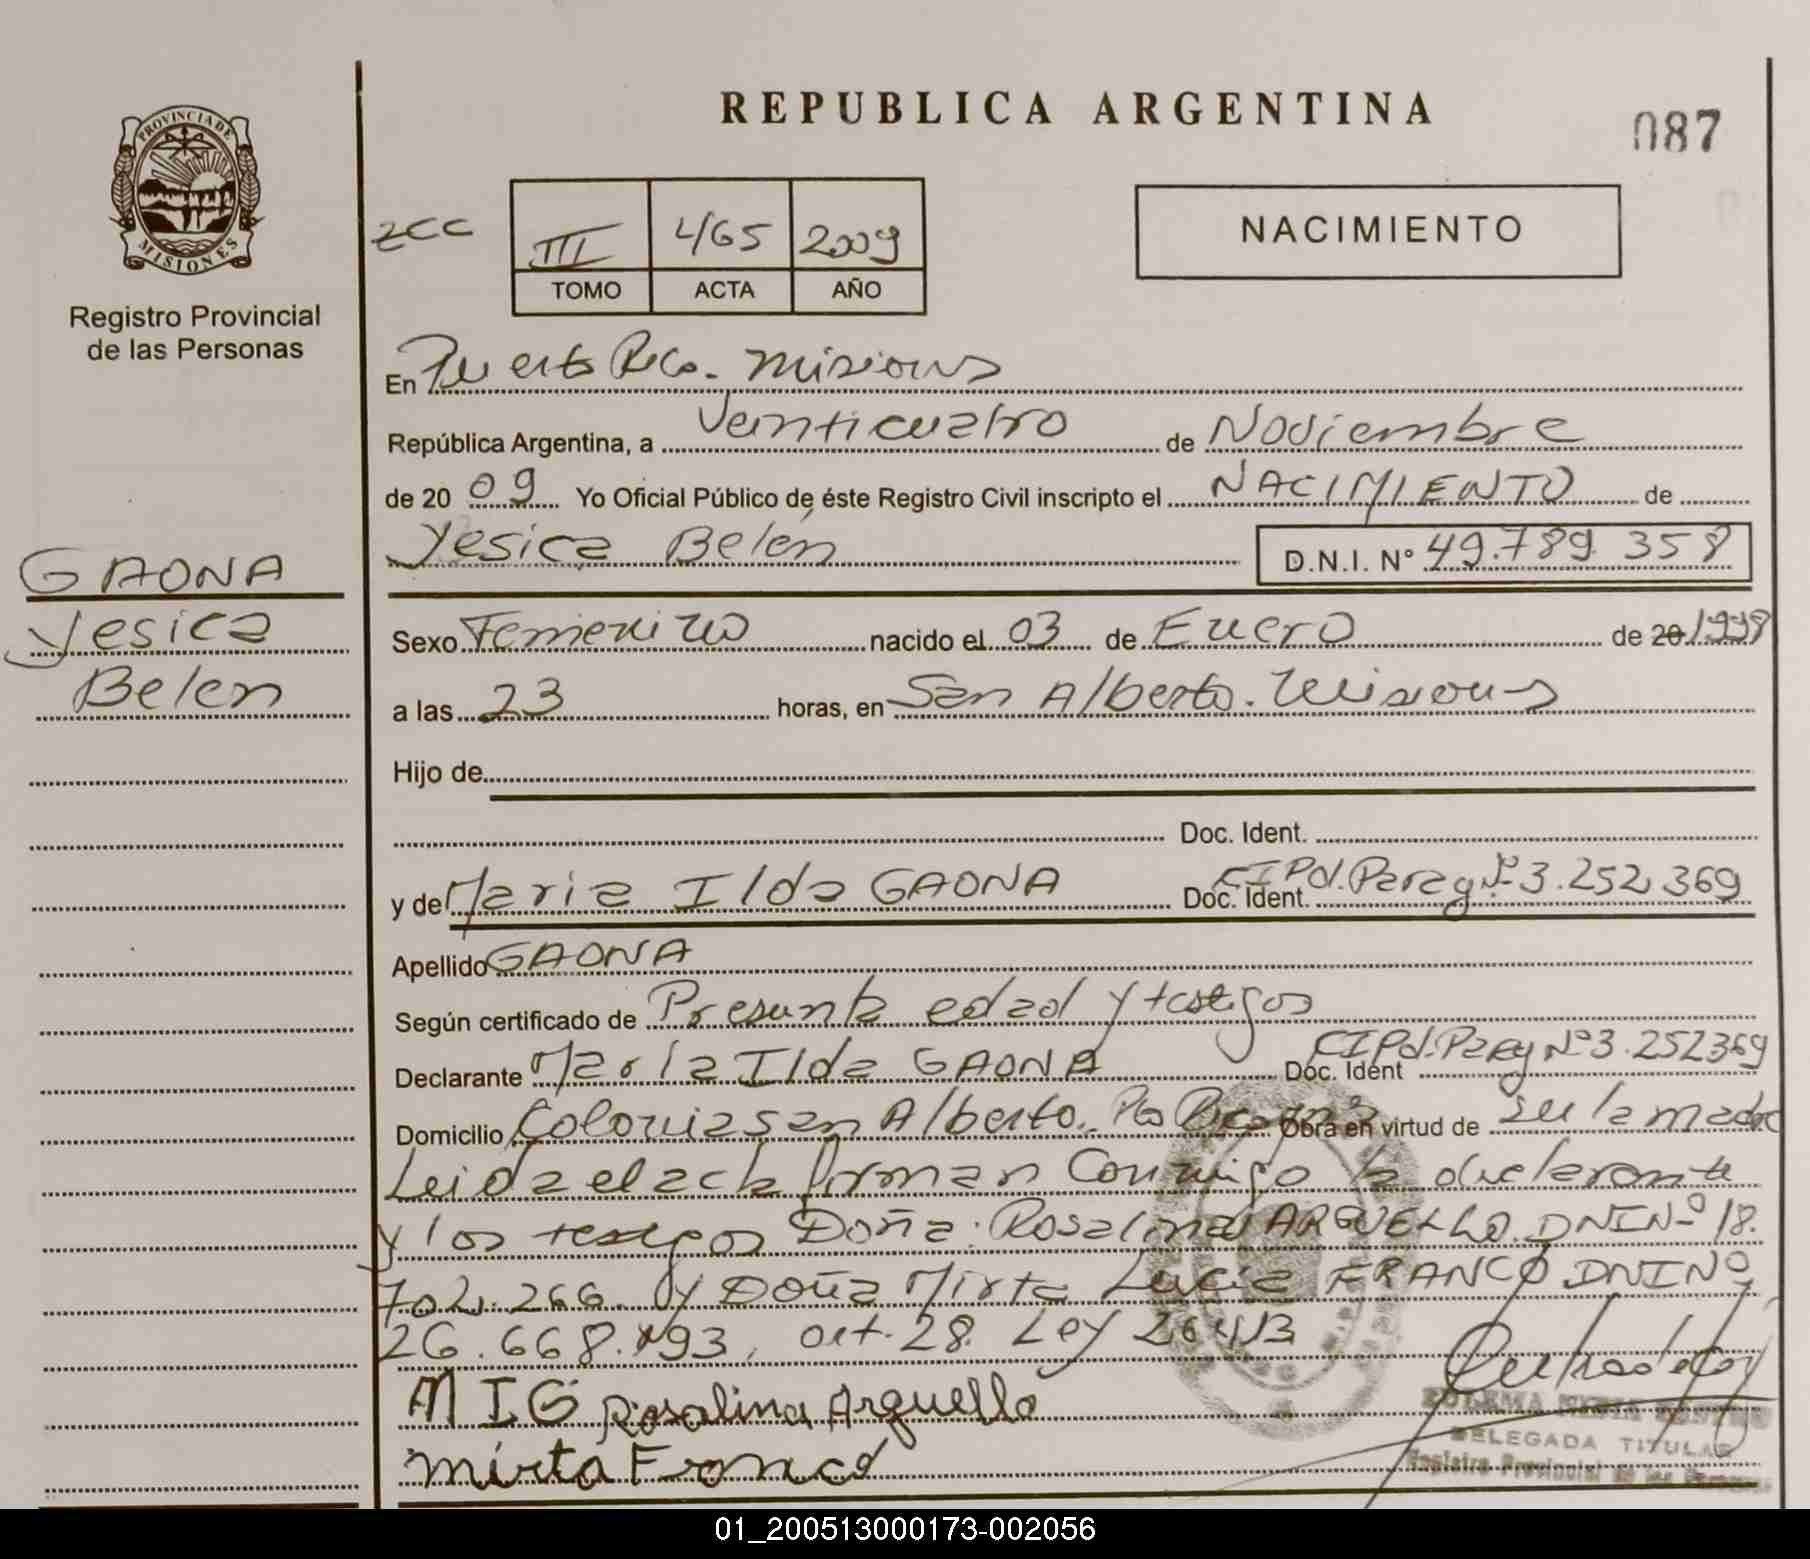 REPUBLICA ARGENTINA
087
PROVINCIA DE
MISIONES
Registro Provincial
de las Personas
zcc
III 465 2009
TOMO ACTA AÑO
NACIMIENTO
En Puerto Rico. Misiones
República Argentina, a Veinticuatro de Noviembre
de 20 09 Yo Oficial Público de éste Registro Civil inscripto el NACIMIENTO de
Yesica Belén D.N.I. Nº 49.789.358
GAONA
Yesica
Belen
Sexo Femenino nacido el 03 de Enero de 20 1998
a las 23 horas, en San Alberto. Misiones
Hijo de
Doc. Ident.
y de Maria Ilda GAONA Doc. Ident. CIPol. Parag Nº 3.252.369
Apellido GAONA
Según certificado de Presunta edad y testigos
Declarante Maria Ilda GAONA Doc. Ident CIPol. Parag Nº 3.252369
Domicilio Colonia San Alberto. Pto Rico Obra en virtud de ser la madre
Leida el acta firman Conmigo la declarante
y los testigos Doña: Rosalina ARGUELLO. DNI Nº 18.
702.266. y Doña Mirta Lucia FRANCO DNI Nº
26.668.193, art. 28. Ley 26413
M I G Rosalina Arguello
mirta Franco
DELEGADA TITULAR
Registro Provincial de las Personas
01_200513000173-002056